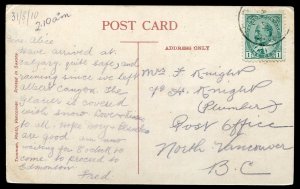 31/8/10
2.10 a.m
POST CARD
ADDRESS ONLY
Alice
Have arrived at
Calgary quite safe, and
raining since we left
Albert Canyon. The
Glacier is covered
with snow.
to all. Hope
are good
waiting for 8 o'clock to
come to proceed to
Edmonton
Fred
Mrs F. Knight
H. Knight
(Plumber)
Post Office
North Vancouver
B.C
CANADA
1 1